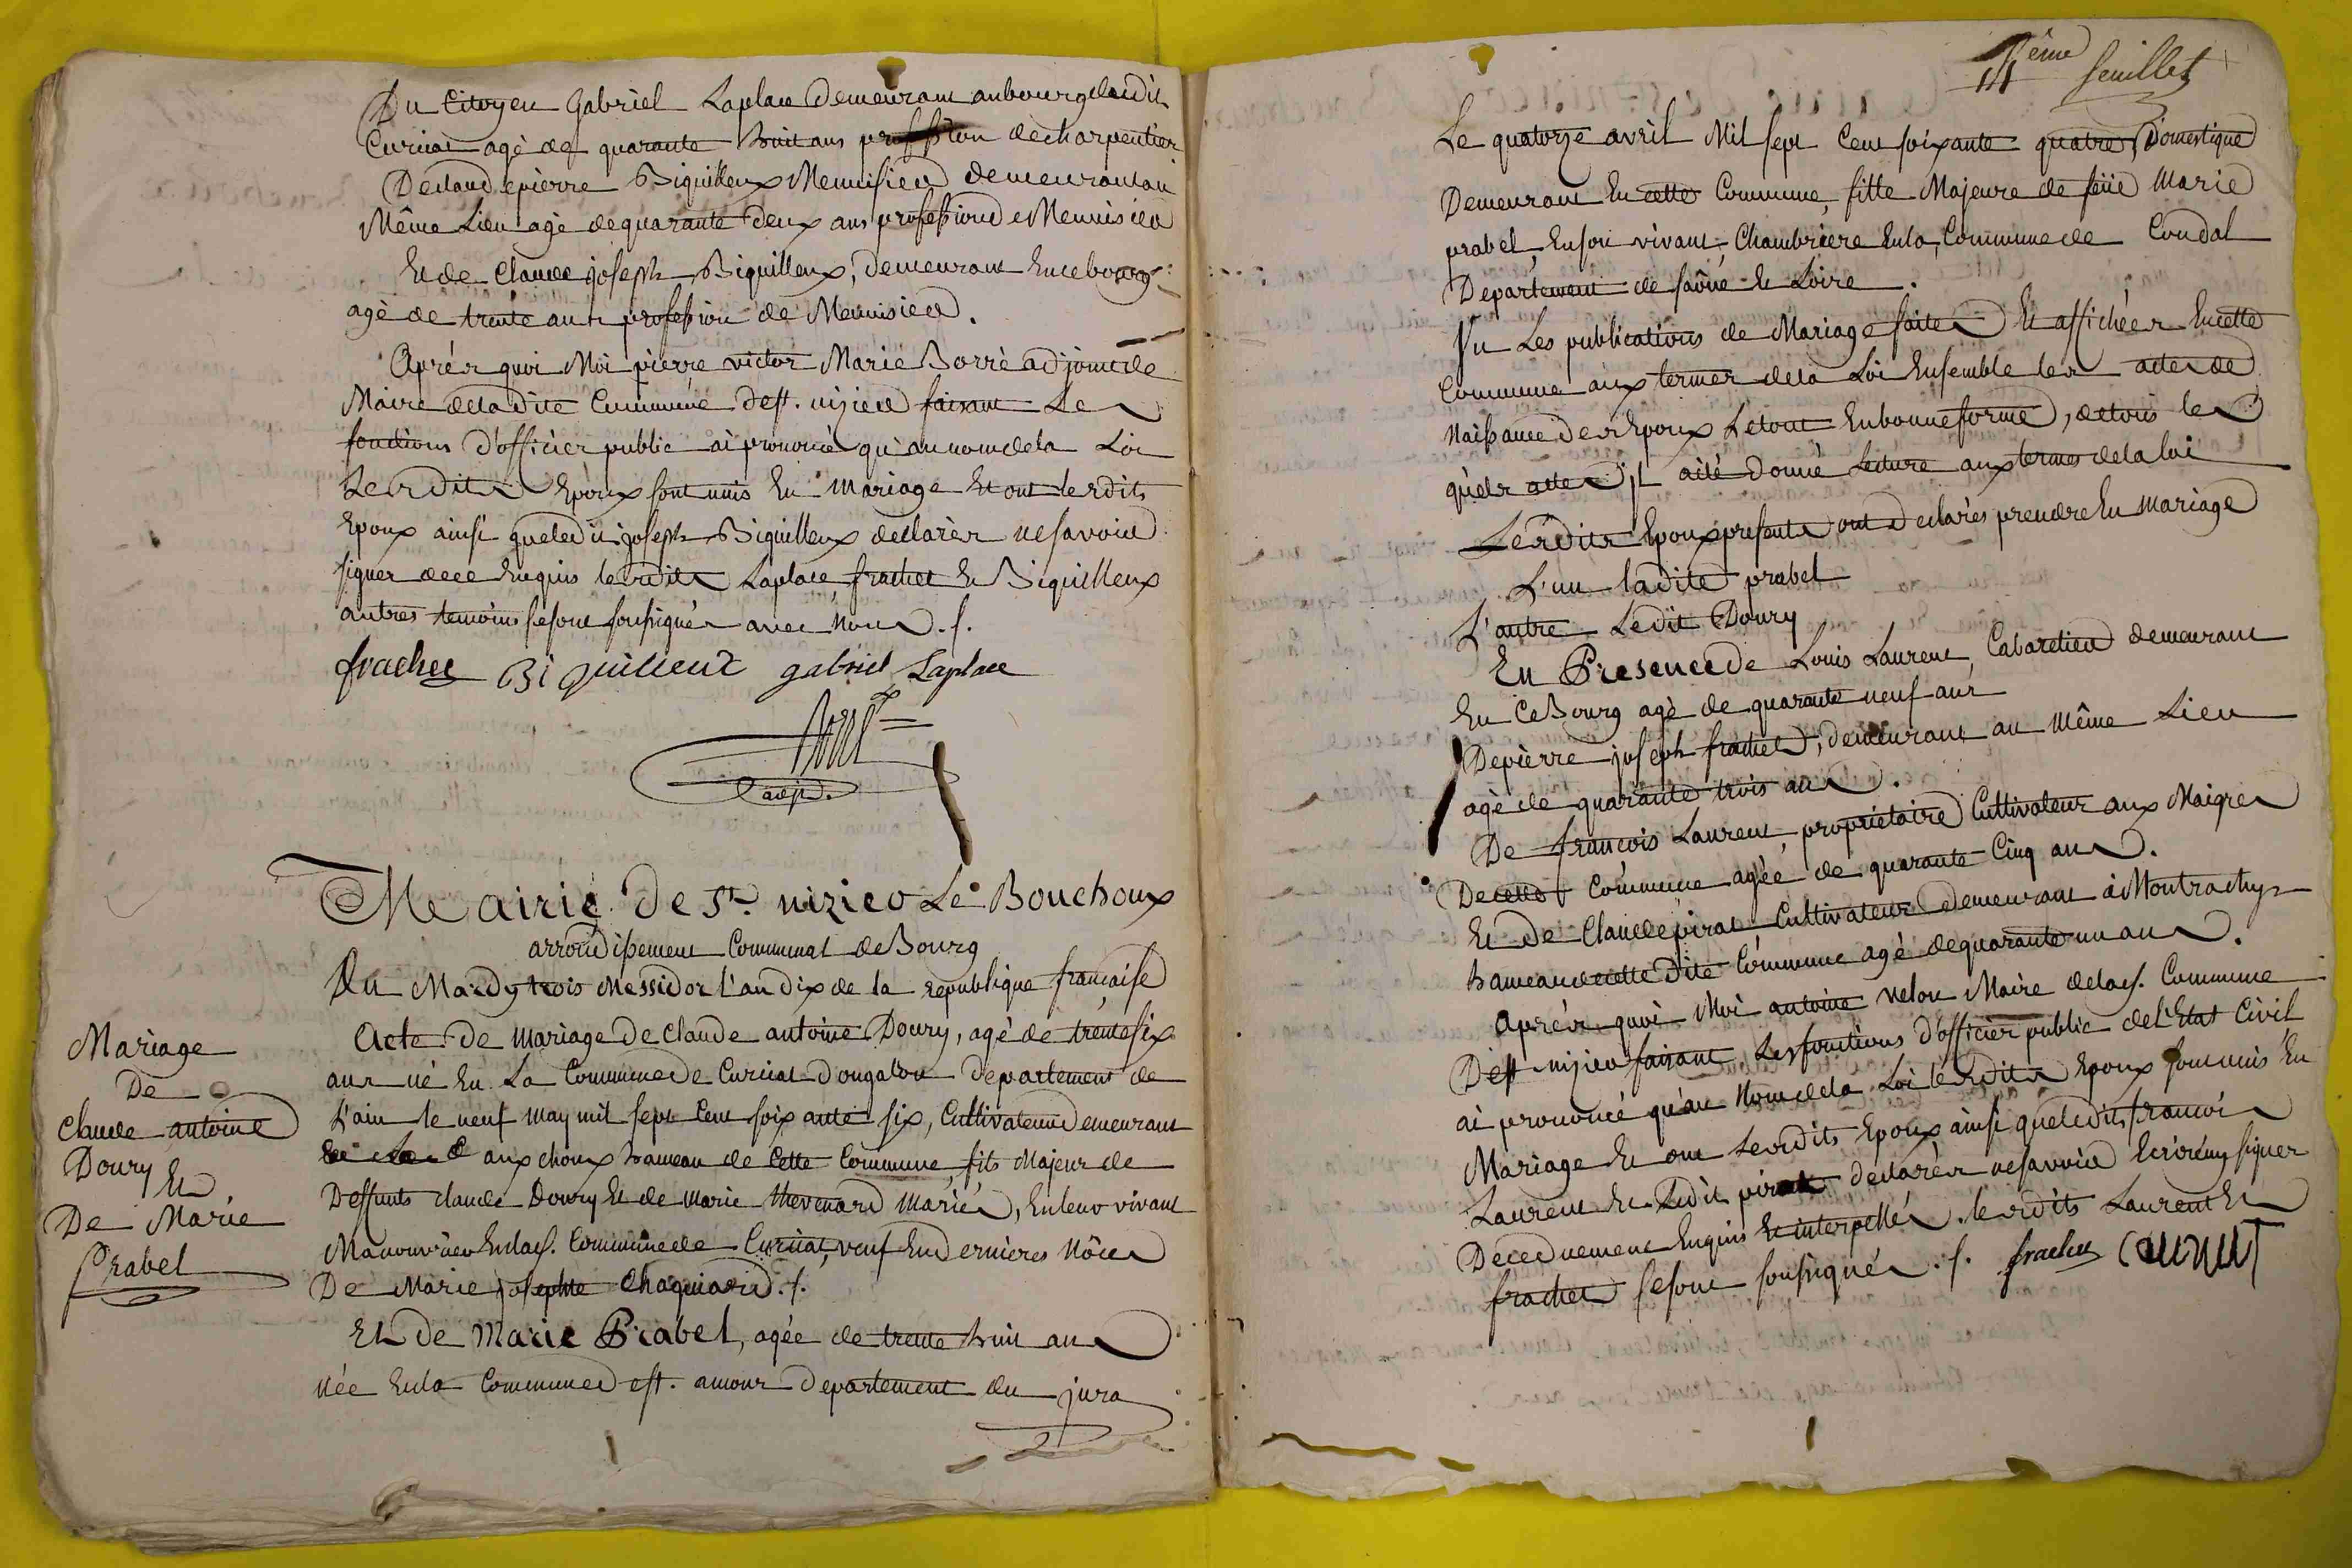 Du Citoyen Gabriel Laplace demeurant au bourg dudit
Curciat agé de quarante huit ans profession de charpentier
De Claude pierre Biguilleux Menuisier demeurant au
Même Lieu agé de quarante deux ans profession de Menuisier
Et de Claude joseph Biguilleux, demeurant En ce bourg
agé de trente ans profession de Menuisier.
Après quoi Moi pierre victor Marie Borré adjoint de
Maire de ladite Commune de st. nizier faisant Les
fonctions d'officier public ai prononcé qu'au nom de la Loi
Lesdits Epoux sont unis En Mariage Et ont lesdits
Epoux ainsi que ledit joseph Biguilleux declarés ne savoir
signer de ce Enquis lesdits Laplace frachet Et Biguilleux
autres temoins se sont soussignés avec Nous ./.
frachet Biguilleux gabriel Laplace
adjt.
Mairie de St. nizier Le Bouchoux
arrondissement Communal de Bourg
Du Mardy trois Messidor l'an dix de la republique française
Acte de Mariage de Claude antoine Doury, agé de trente six
ans né En La Commune de Curciat Dongalon departement de
L'ain le neuf may mil sept Cent soixante six, Cultivateur Demeurant
aux choux hameau de Cette Commune, fils Majeur de
Deffunts claude Doury Et de Marie thevenard Mariés, En leur vivant
Manouvrier En lad. Commune de Curciat, veuf En dernieres Nôces
De Marie josephte Chaquiard ./.
Et de Marie Prabel, agée de trente huit ans
née En la Commune de st. amour Departement du jura
Mariage
De
Claude antoine
Doury Et
De Marie
Prabel
4ême feuillet
Le quatorze avril Mil sept Cent soixante quatre, Domestique
Demeurant En cette Commune, fille Majeure de feüe Marie
prabel, En son vivant, Chambriere En la Commune de Condal
Departement de saône Et Loire.
Vu Les publications de Mariage faites Et affichées En cette
Commune aux termes de la Loi Ensemble les actes de
Naissance des Epoux Le tout En bonne forme, de tous les
quels actes il a été donné Lecture aux termes de la loi
Lesdits Epoux presents ont declarés prendre En Mariage
L'un ladite prabel
L'autre Ledit Doury
En Presence de Louis Laurent, Cabaretier demeurant
En Ce Bourg agé de quarante neuf ans
De pierre joseph frachet, demeurant au même Lieu
agé de quarante trois ans.
De françois Laurent, proprietaire Cultivateur aux Maigres
De cette Commune agée de quarante Cinq ans.
Et de Claude pirat Cultivateur demeurant à Montrachy
hameau de cette Dite Commune agé de quarante un ans.
Après quoi Moi antoine velon Maire de lad. Commune
De st nizier faisant Les fonctions d'officier public de l'Etat Civil
ai prononcé qu'au Nom de la Loi lesdits Epoux sont unis En
Mariage Et ont Lesdits Epoux ainsi que ledit françois
Laurent Et Ledit pirat declarés ne savoir Ecrire ny signer
De ce duement Enquis Et interpellés. lesdits Laurent Et
frachet se sont soussignés ./. frachet